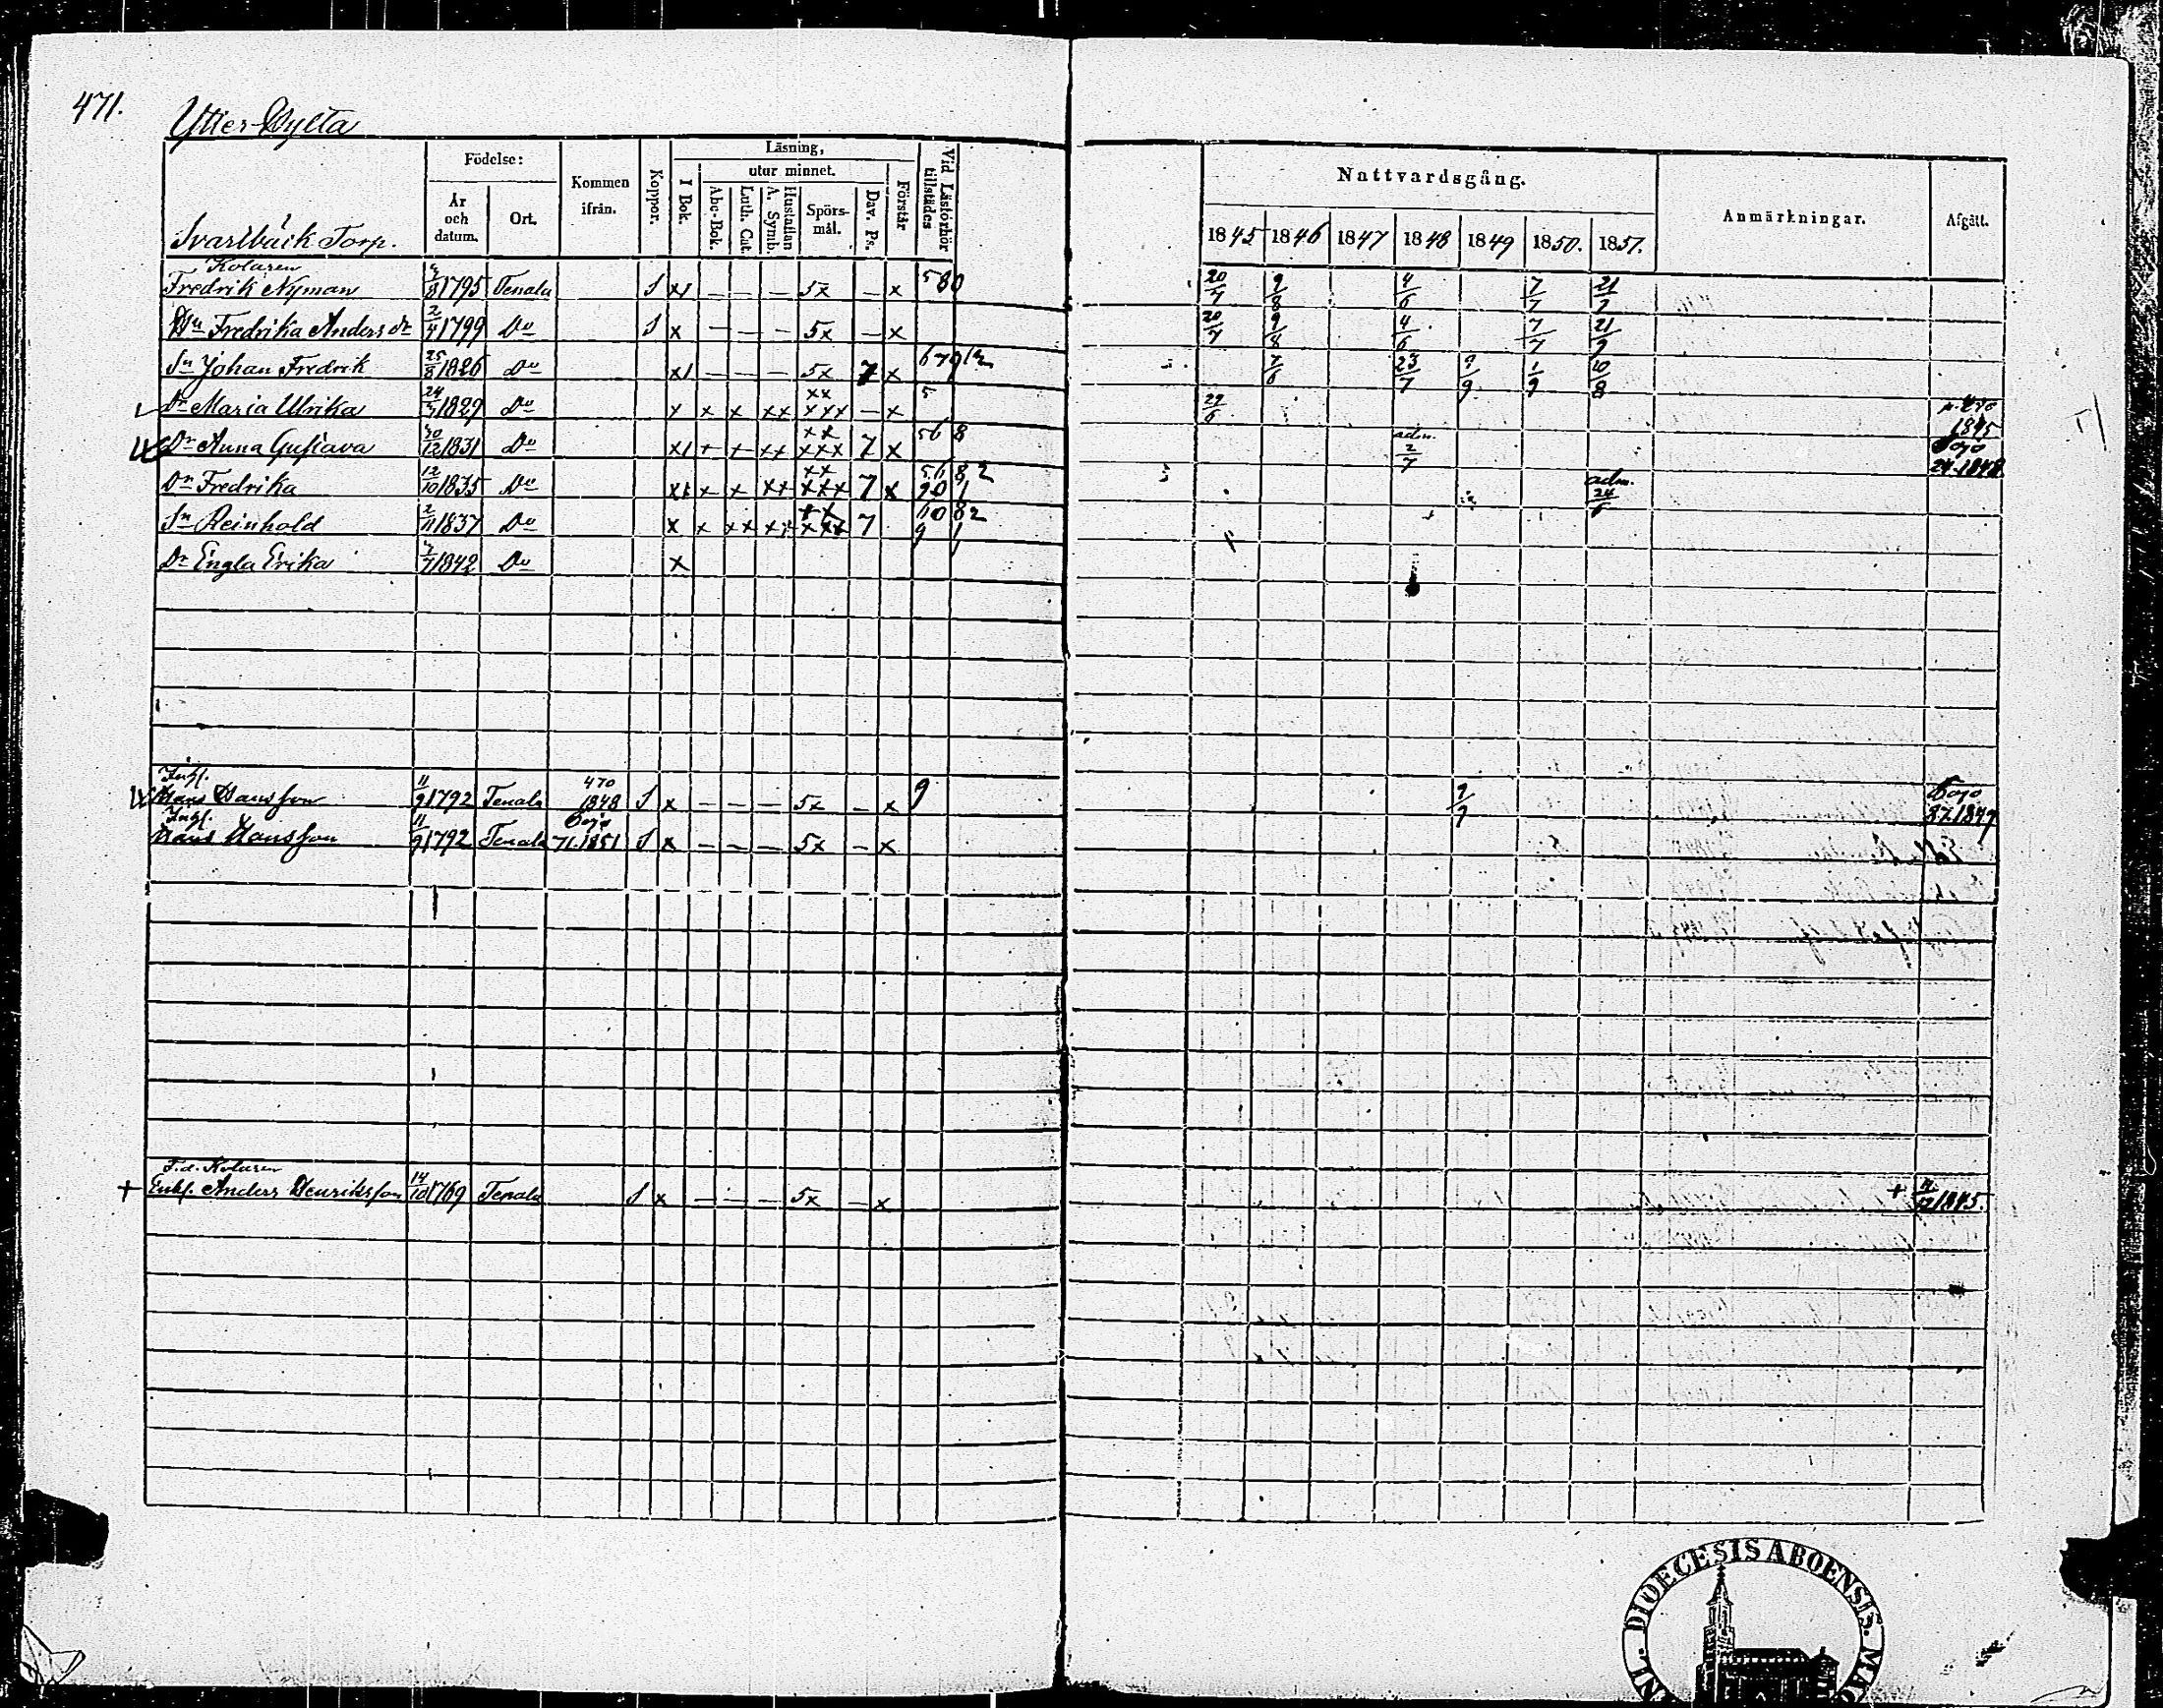 471.
Ytter-Bylta
Svartbäck Torp.
Födelse:
År och datum.
Ort.
Kommen ifrån.
Koppor.
Läsning,
I Bok.
utur minnet.
Abc-Bok.
Luth. Cat.
A. Symb. Hustaflan
Spörsmål.
Dav. Ps.
Förstår
Vid Läsförhör tillstädes
Nattvardsgång.
1845 1846 1847 1848 1849 1850. 1851.
Anmärkningar.
Afgått.
Kolaren
Fredrik Nyman 1795 Tenala S x1 — — — 5x — x 580 20/7 9/8 4/6 7/7 21/7
Hu Fredrika Anders dr 2/4 1799 Do S x — — — 5x — x 20/7 9/8 4/6 7/7 21/9
Sn Johan Fredrik 25/8 1826 Do x1 — — — 5x 7 x 7/6 23/7 9/9 1/9 10/8
Dr Maria Ulrika 24 1829 Do x x x xx xx xxx — x 5 29/6 1845
Dr Anna Gustava 30/12 1831 Do x1 + + xx xx xxx 7 x 568 adm. 2/7 Pojo 24.1848
Dr Fredrika 12/10 1835 Do x x xx xx xxx 7 x 5682 901 adm. 24/6
Sn Reinhold 2/11 1837 Do x x xx xx xx xxx 7 9 1
Dr Engla Erika 1842 Do x
Inh.
Hans Hansson 11/9 1792 Tenala 470 1848 S x — — — 5x — x 9 Pojo 37.1849
Inh.
Hans Hansson 11/9 1792 Tenala Pojo 71.1851 S x — — — 5x — x
F.d. Kolaren
+ Enkl. Anders Henriksson 14/10 1769 Tenala S x — — — 5x — x + 1845.
DIOECESIS ABOENSIS.